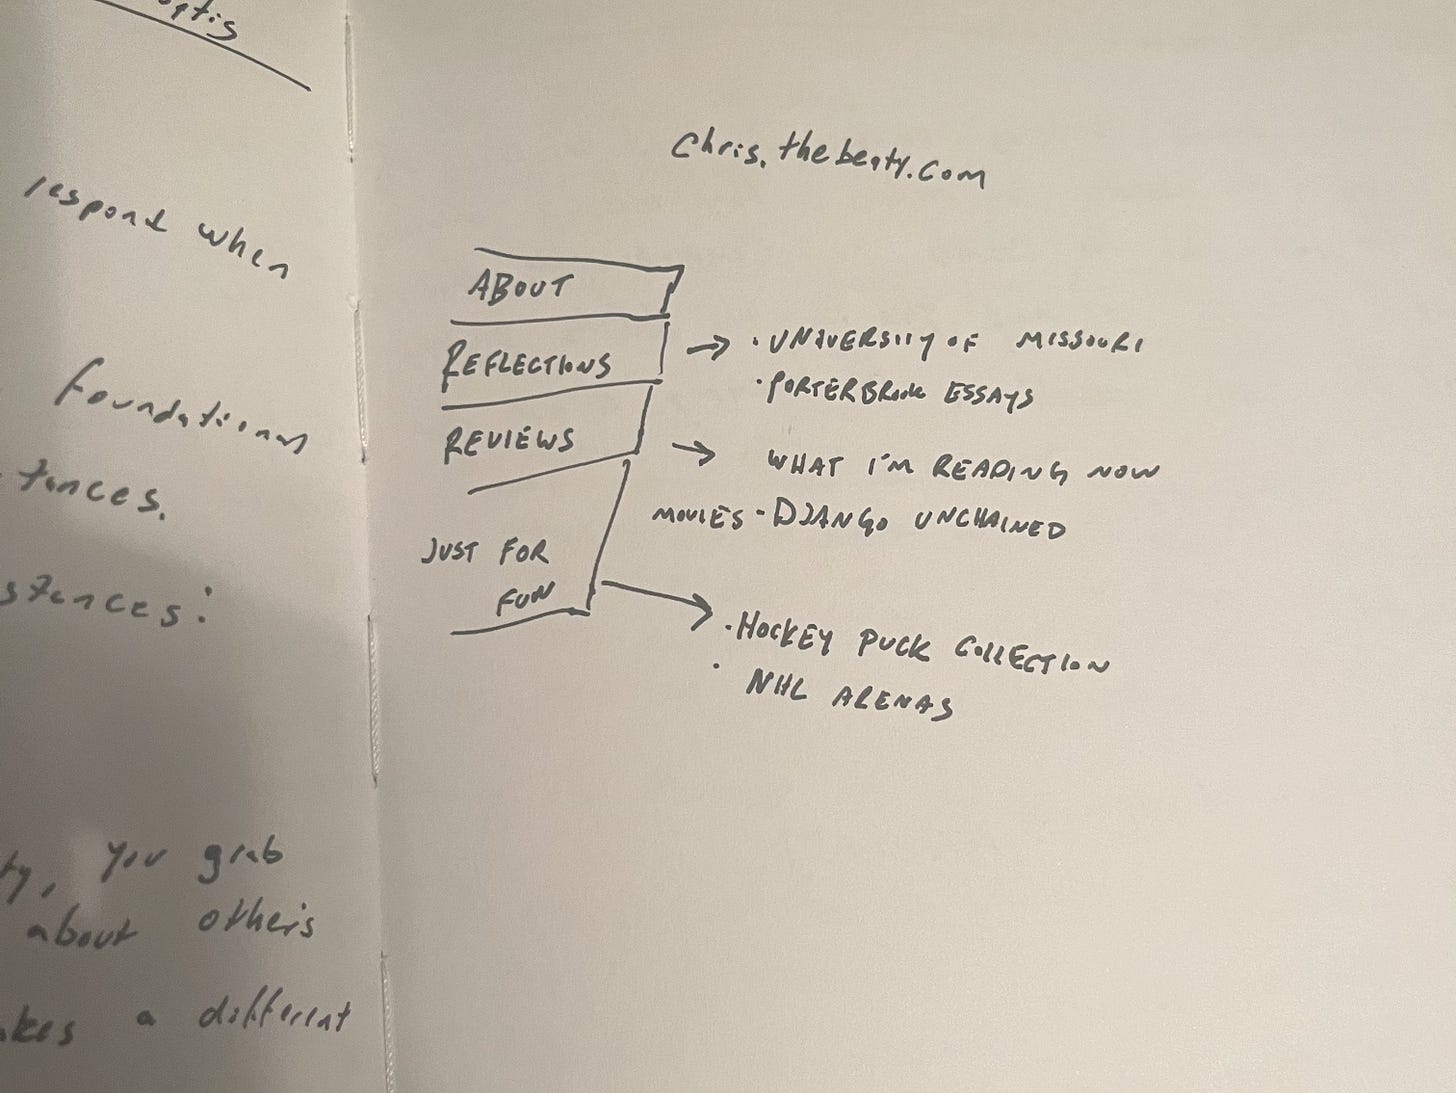 respond when
Foundational
tances.
stances:
ty, you grab
about others
akes a different
chris.thebeaty.com
ABOUT
REFLECTIONS
→ • UNIVERSITY OF MISSOURI
• PORTERBROOK ESSAYS
REVIEWS
→ WHAT I'M READING NOW
MOVIES • DJANGO UNCHAINED
JUST FOR
FUN
→ • HOCKEY PUCK COLLECTION
• NHL ARENAS